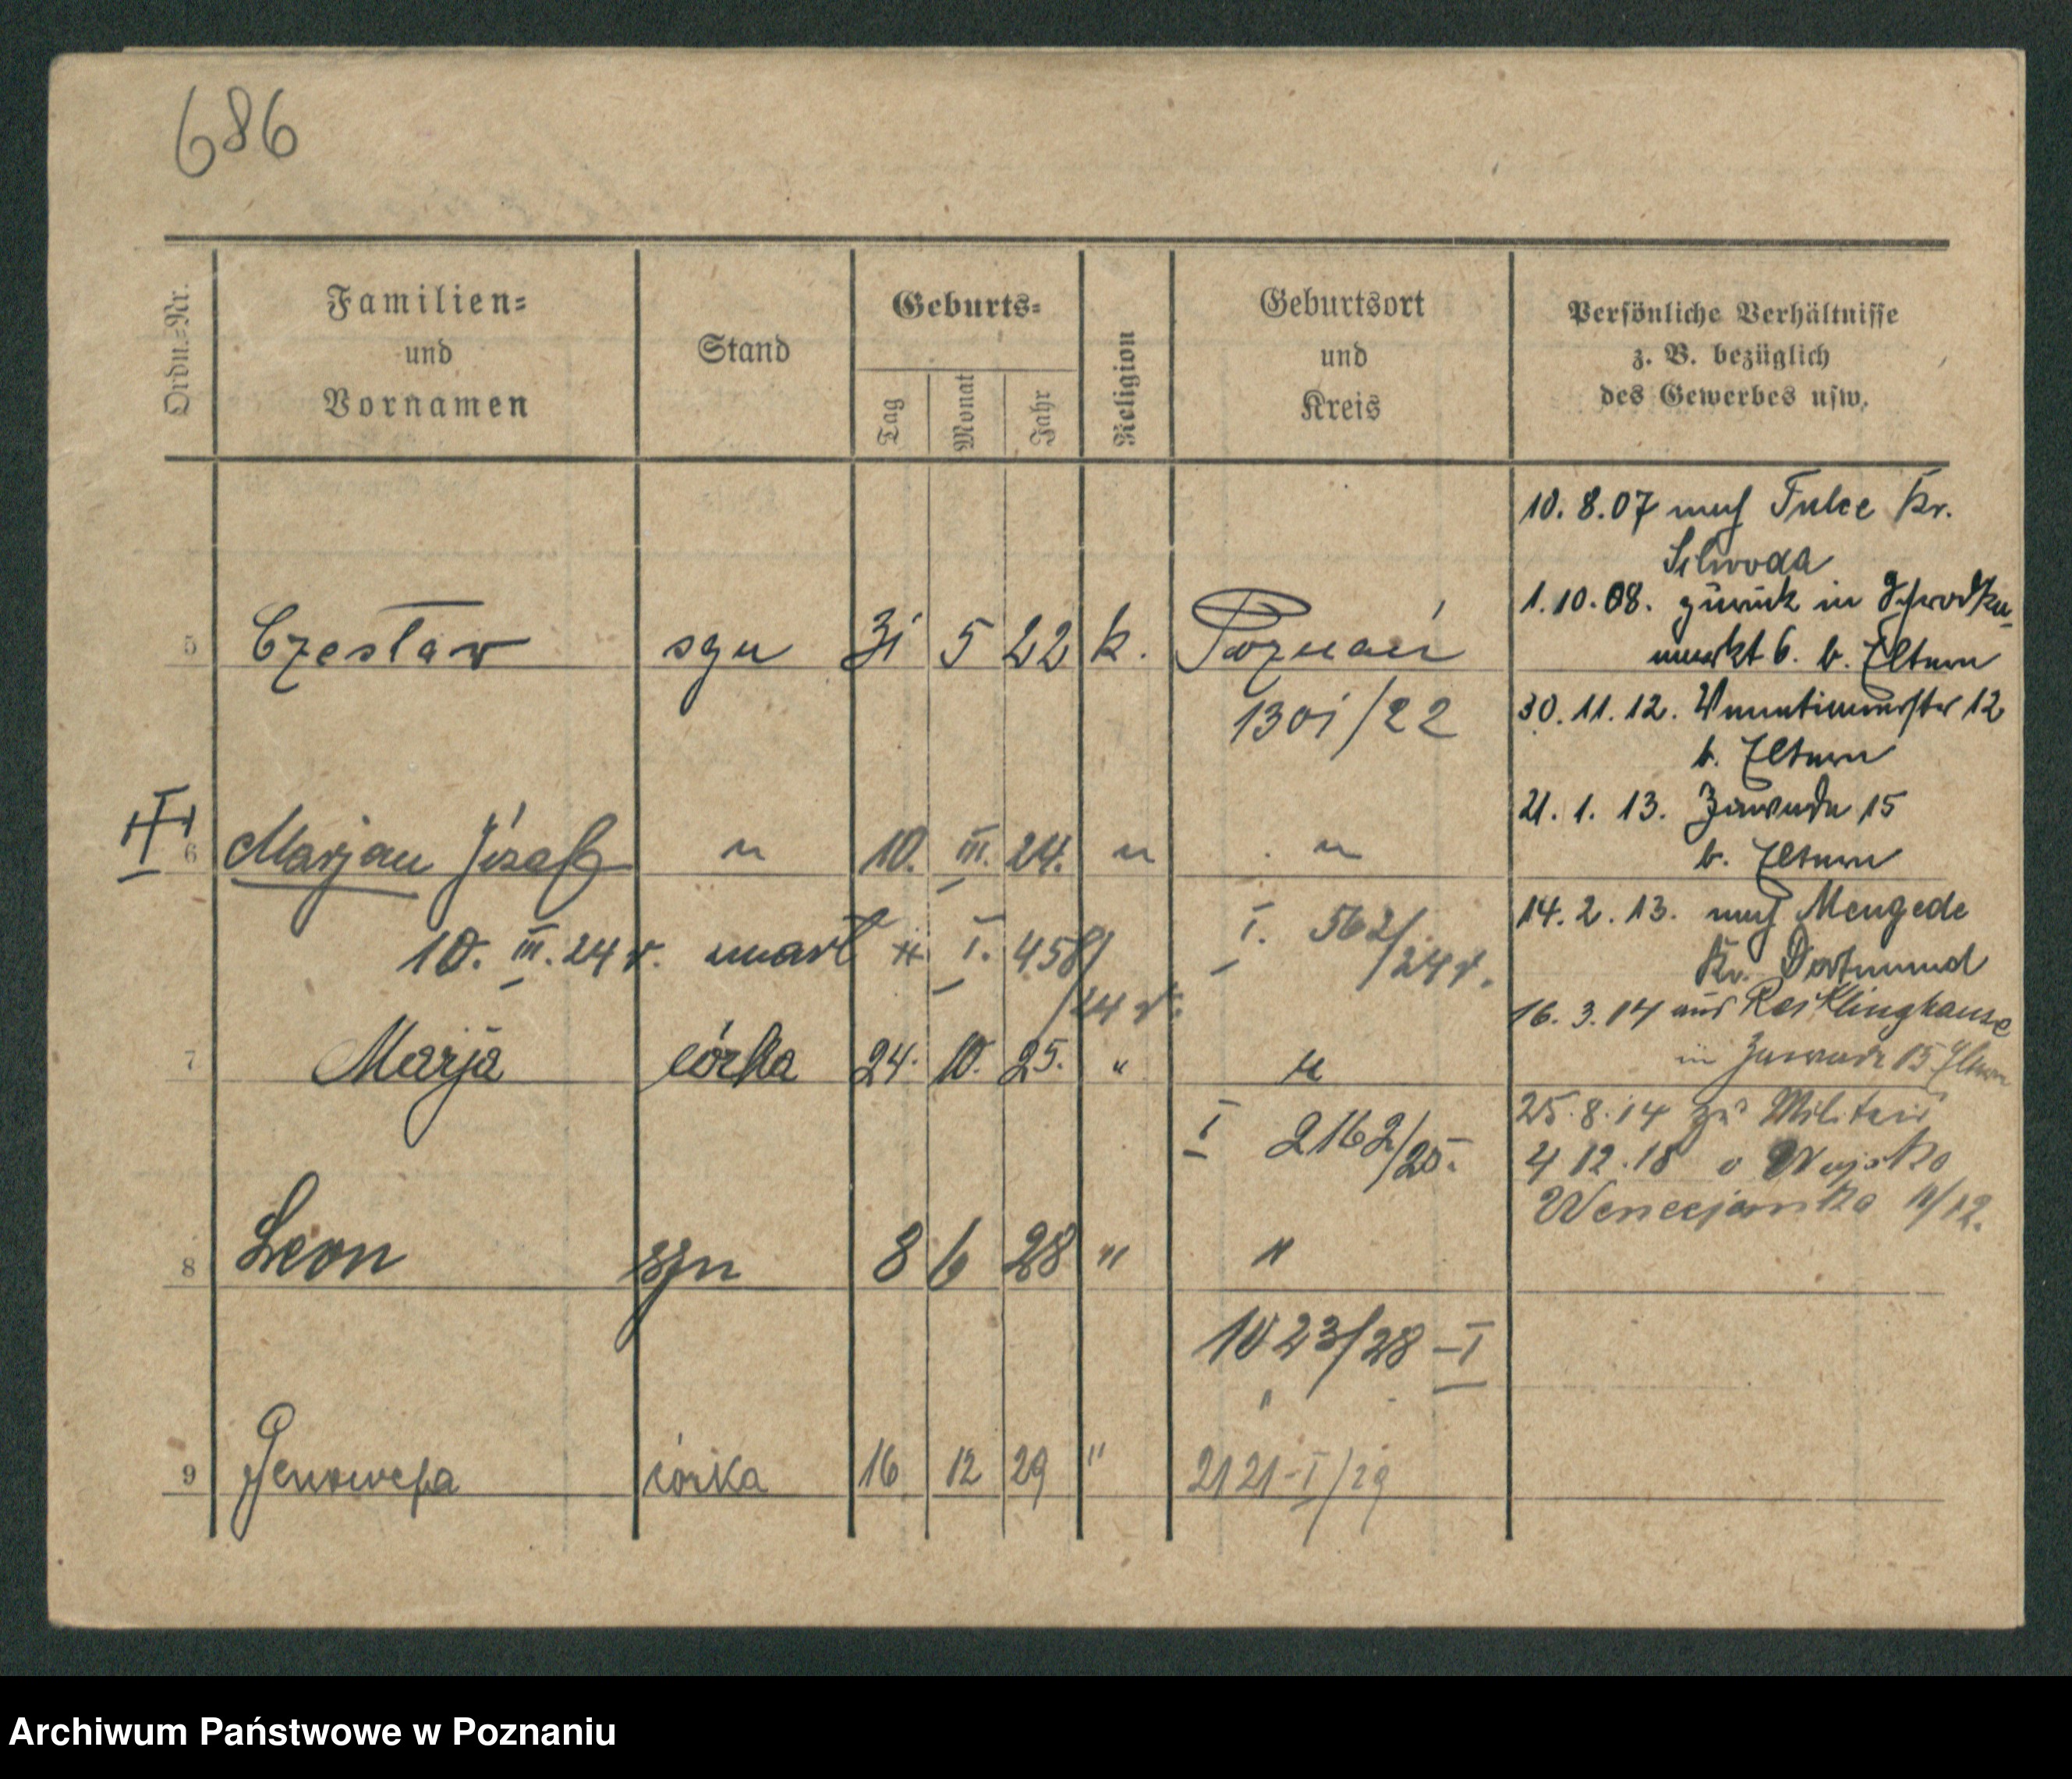 686
Ordn.-Nr.
Familien-
und
Vornamen
Stand
Geburts-
Tag
Monat
Jahr
Religion
Geburtsort
und
Kreis
Persönliche Verhältnisse
z. B. bezüglich
des Gewerbes usw.
10. 8. 07 nach Tulce Kr.
Schroda
1. 10. 08. zurück in
markt 6. b. Eltern
5 Czesław syn 31 5 22 k. Poznań
1301/22
30. 11. 12. 12
b. Eltern
21. 1. 13. Zawade 15
b. Eltern
6 Marjan Józef " 10. III. 24. " "
10. III. 24 r. zmarł # I. 458/24 r.
I. 562/24 r.
14. 2. 13. nach Mengede
Kr. Dortmund
16. 3. 14 aus Recklinghause
in Zawade 15 Eltern
7 Marja córka 24. 10. 25. " "
I 2162/25.
25. 8. 14 zu Militair
4 12. 18 z Wojska
Wenecjańska 11/12.
8 Leon syn 8 6 28 " "
1023/28 - I
"
9 Genowefa córka 16 12 29 " 2121-I/29
Archiwum Państwowe w Poznaniu